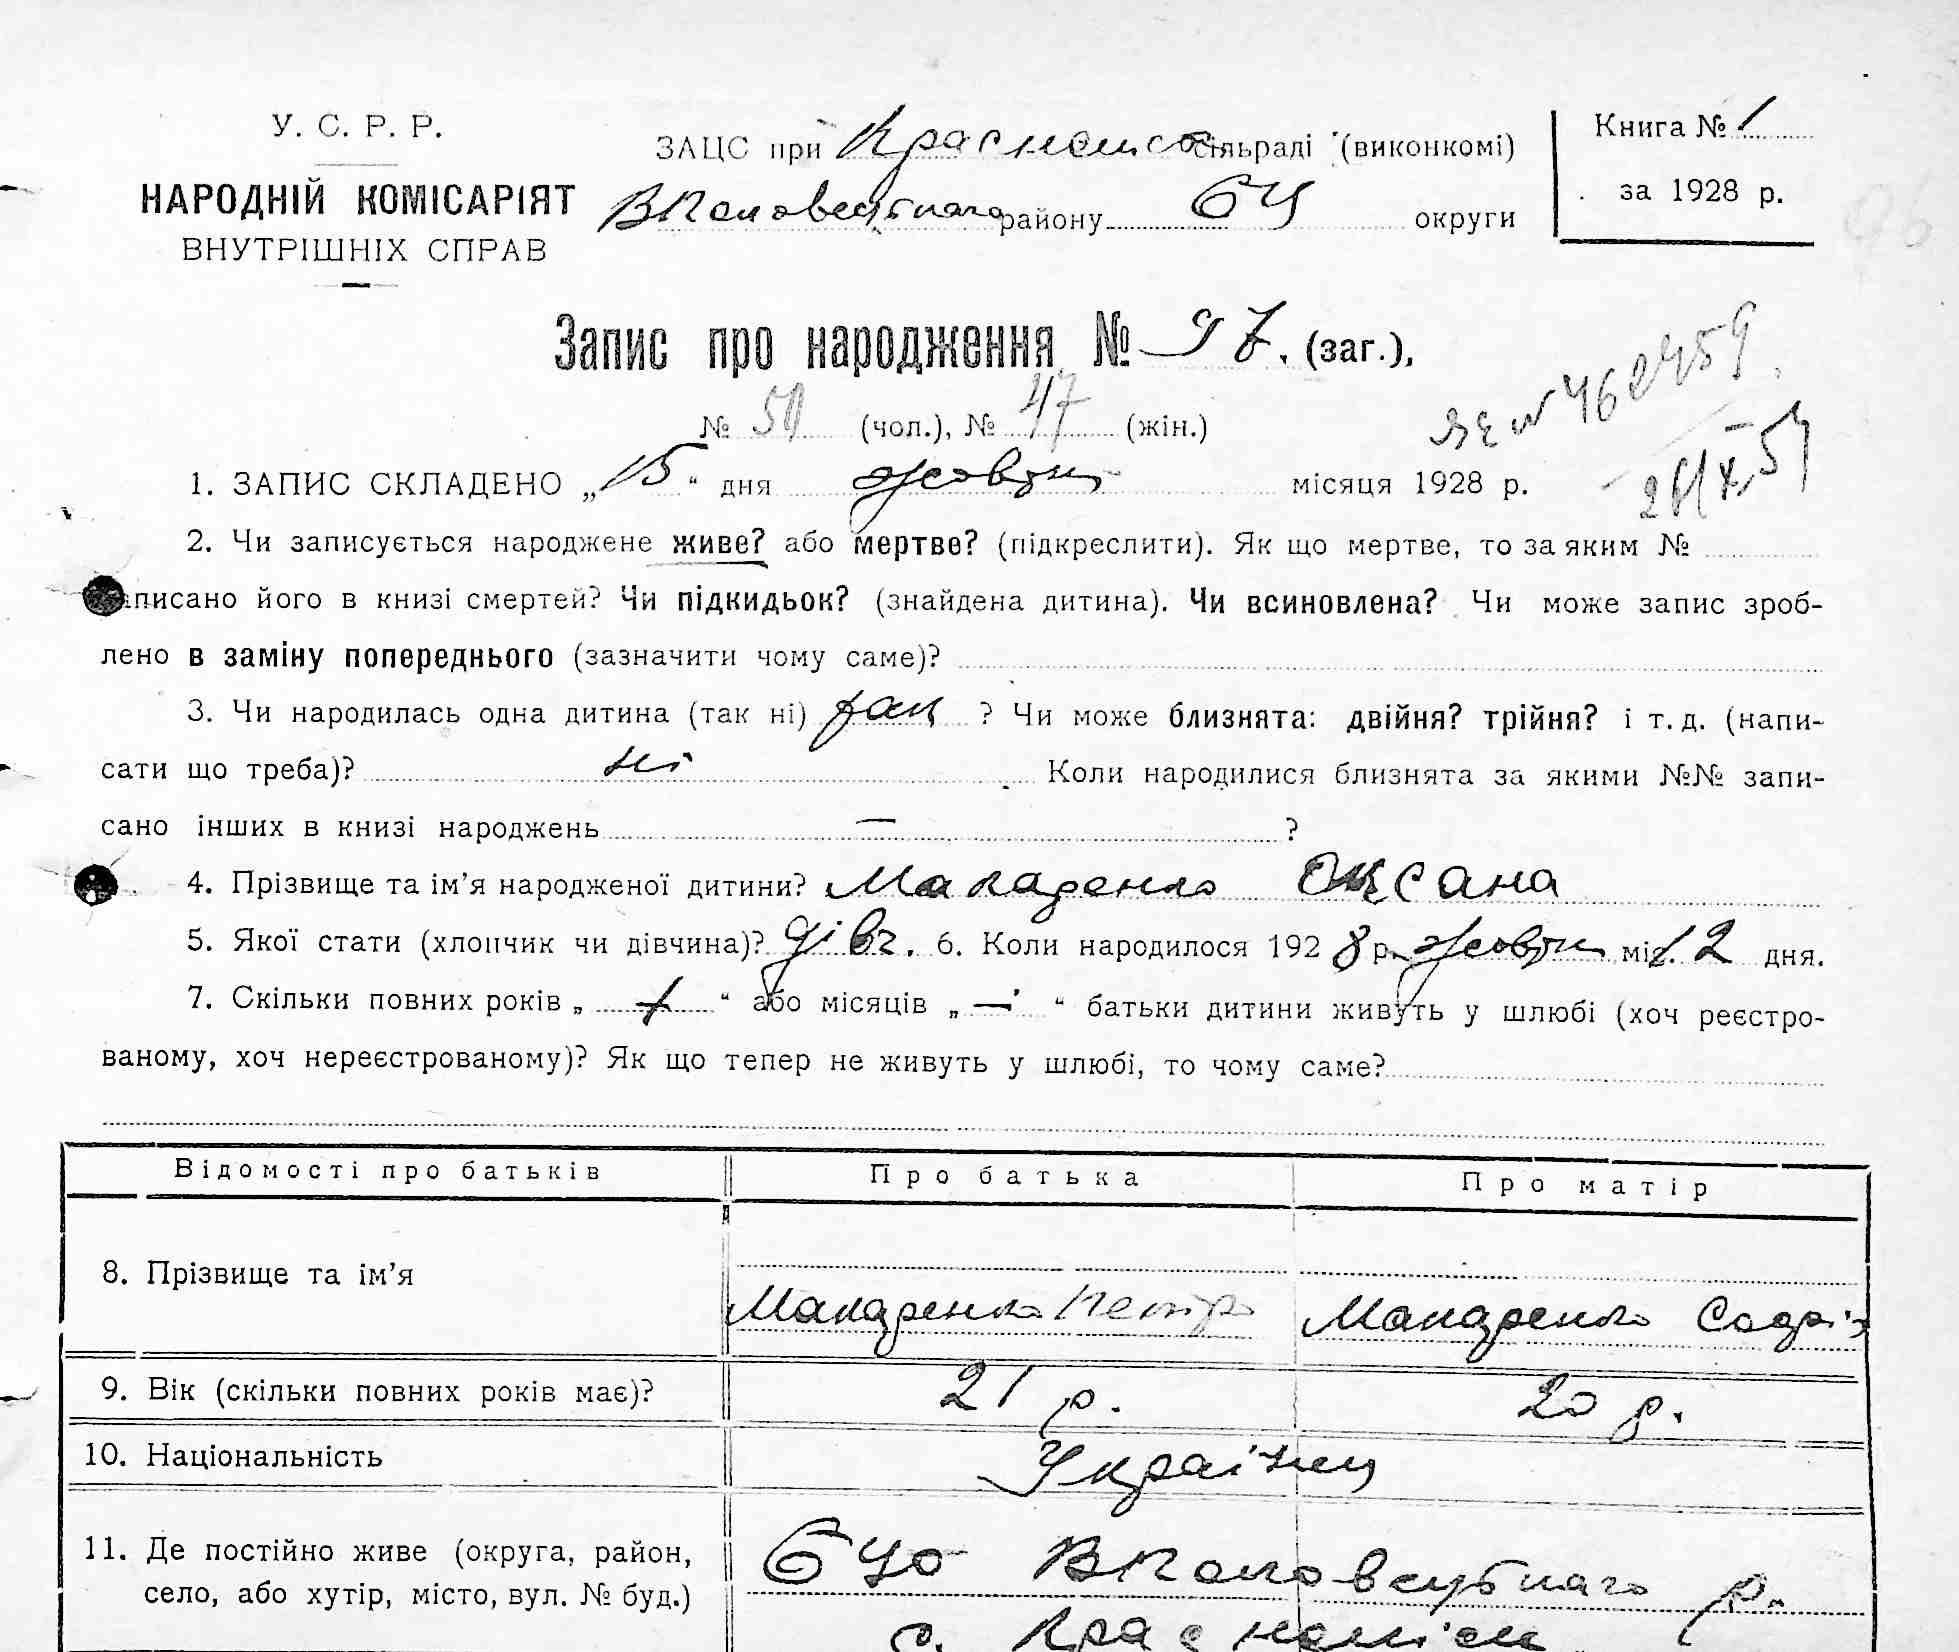 У. С. Р. Р.
НАРОДНІЙ КОМІСАРІЯТ
ВНУТРІШНІХ СПРАВ
ЗАЦС при сільраді (виконкомі)
району БЦ округи
Книга № 1
за 1928 р.
Запис про народження № 97. (заг.),
№ 50 (чол.), № 47 (жін.)
1. ЗАПИС СКЛАДЕНО „15“ дня жовтн місяця 1928 р.
2. Чи записується народжене живе? або мертве? (підкреслити). Як що мертве, то за яким №
записано його в книзі смертей? Чи підкидьок? (знайдена дитина). Чи всиновлена? Чи може запис зроб-
лено в заміну попереднього (зазначити чому саме)?
3. Чи народилась одна дитина (так ні) так ? Чи може близнята: двійня? трійня? і т. д. (напи-
сати що треба)? ні Коли народилися близнята за якими №№ запи-
сано інших в книзі народжень — ?
4. Прізвище та ім’я народженої дитини? Макаренко Оксана
5. Якої стати (хлопчик чи дівчина)? дівч. 6. Коли народилося 1928 р. жовтн міс. 12 дня.
7. Скільки повних років „ “ або місяців „—“ батьки дитини живуть у шлюбі (хоч реєстро-
ваному, хоч нереєстрованому)? Як що тепер не живуть у шлюбі, то чому саме?
Відомості про батьків Про батька Про матір
8. Прізвище та ім’я Макаренко Петро Макаренко
9. Вік (скільки повних років має)? 21 р. 20 р.
10. Національність Україн
11. Де постійно живе (округа, район,
село, або хутір, місто, вул. № буд.)
БЦО р.
с.